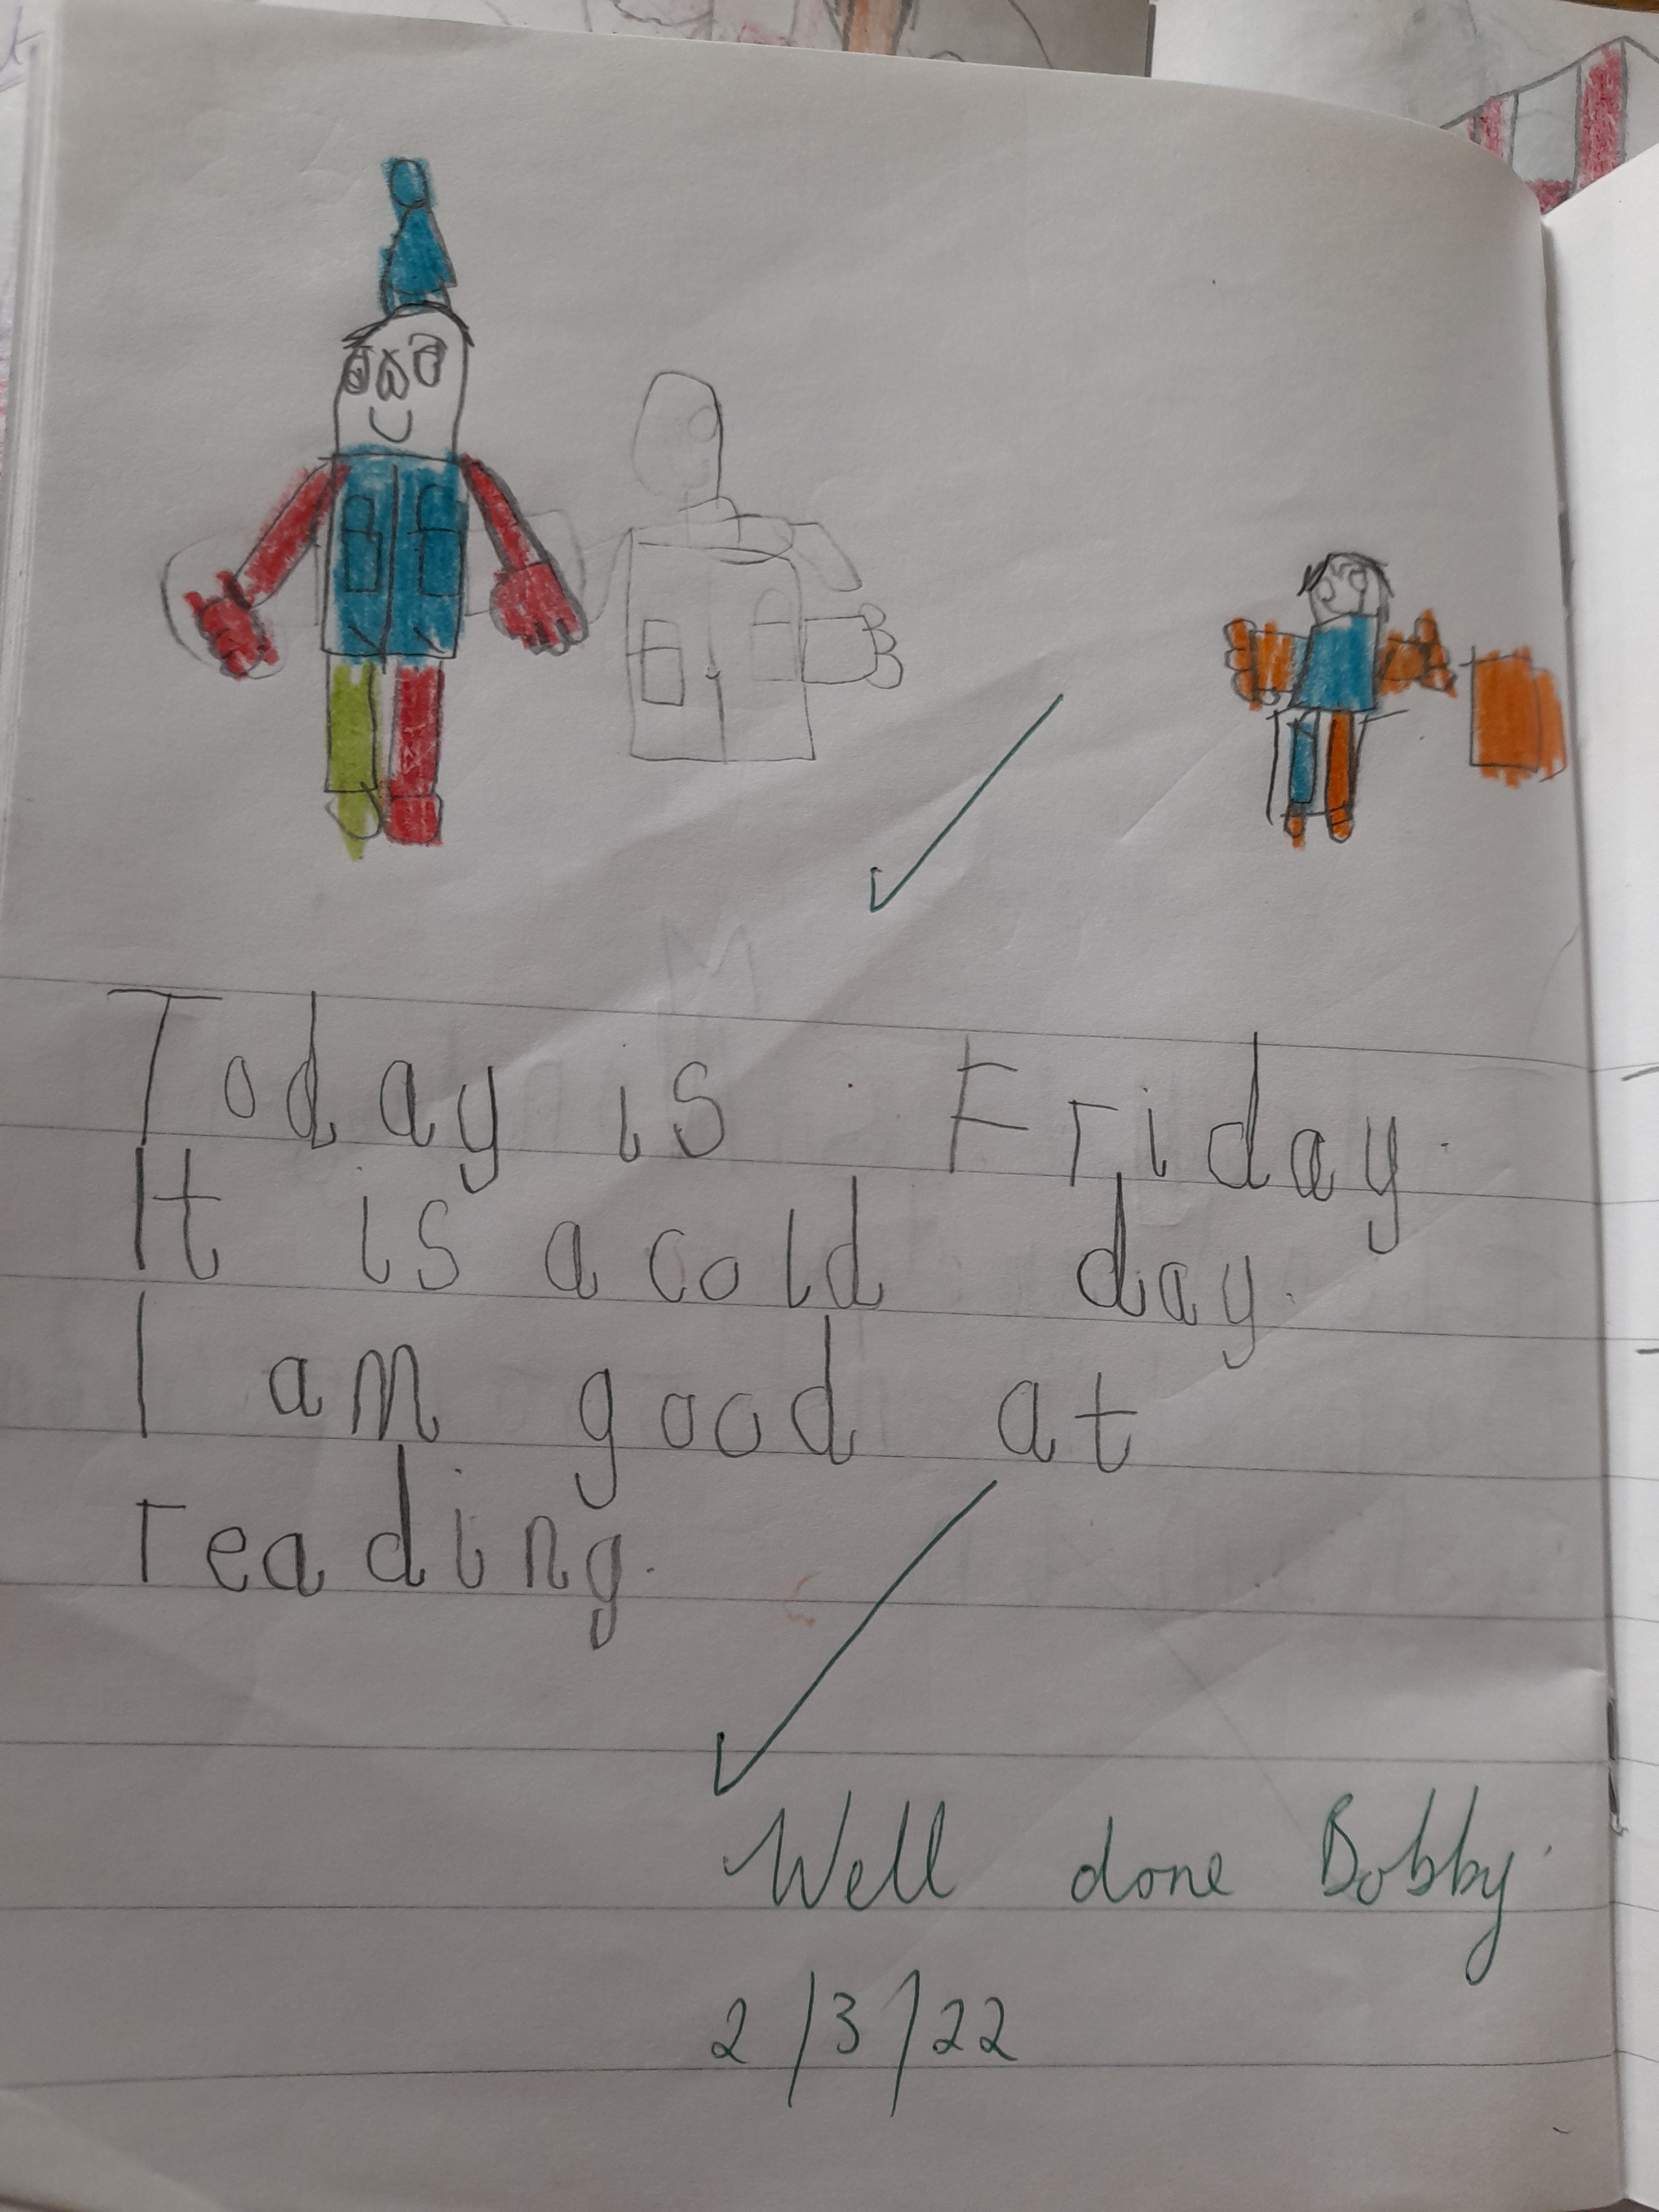 Today is Friday.
It is a cold day.
I am good at
reading.
Well done Bobby.
2/3/22